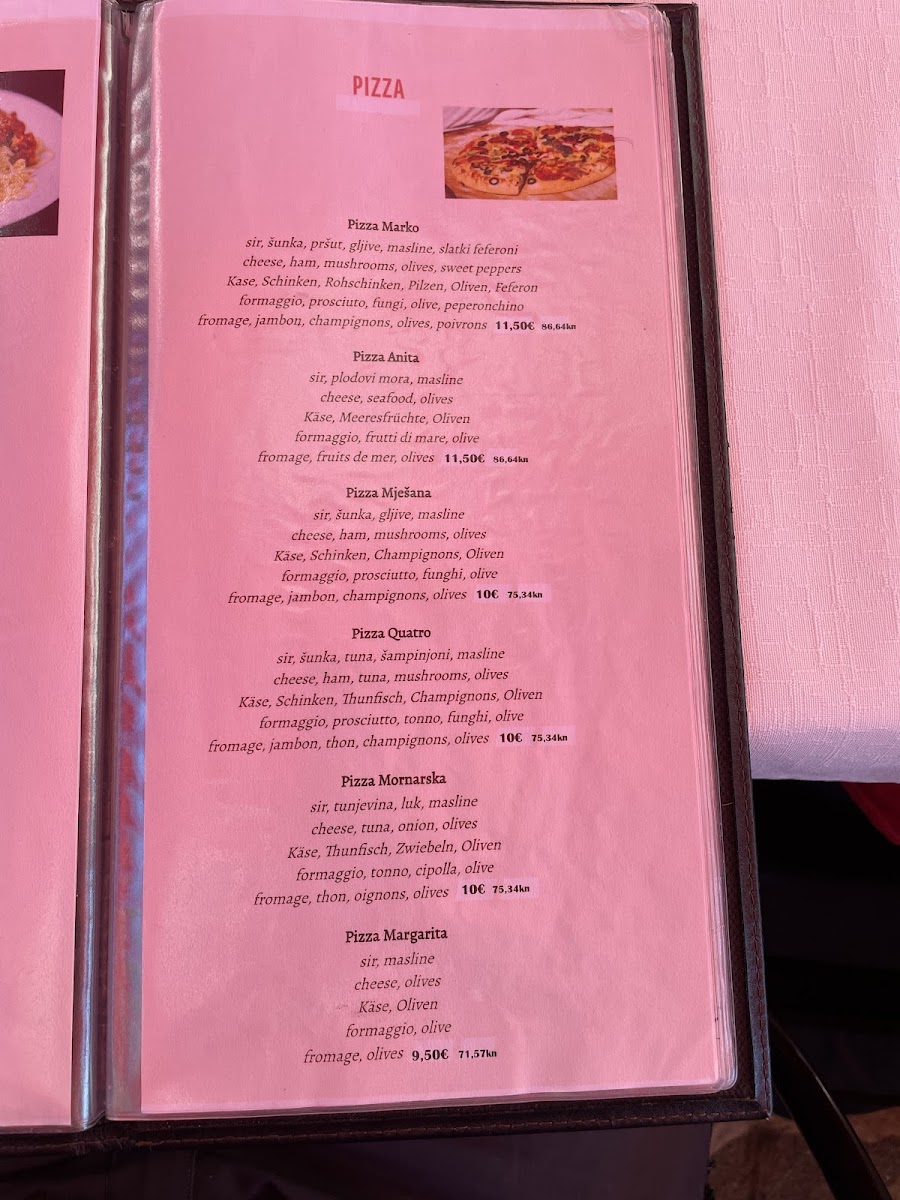 PIZZA
Pizza Marko
sir, šunka, pršut, gljive, masline, slatki feferoni
cheese, ham, mushrooms, olives, sweet peppers
Kase, Schinken, Rohschinken, Pilzen, Oliven, Feferon
formaggio, prosciuto, fungi, olive, peperonchino
fromage, jambon, champignons, olives, poivrons 11,50€ 86,64kn
Pizza Anita
sir, plodovi mora, masline
cheese, seafood, olives
Käse, Meeresfrüchte, Oliven
formaggio, frutti di mare, olive
fromage, fruits de mer, olives 11,50€ 86,64kn
Pizza Mješana
sir, šunka, gljive, masline
cheese, ham, mushrooms, olives
Käse, Schinken, Champignons, Oliven
formaggio, prosciutto, funghi, olive
fromage, jambon, champignons, olives 10€ 75,34kn
Pizza Quatro
sir, šunka, tuna, šampinjoni, masline
cheese, ham, tuna, mushrooms, olives
Käse, Schinken, Thunfisch, Champignons, Oliven
formaggio, prosciutto, tonno, funghi, olive
fromage, jambon, thon, champignons, olives 10€ 75,34kn
Pizza Mornarska
sir, tunjevina, luk, masline
cheese, tuna, onion, olives
Käse, Thunfisch, Zwiebeln, Oliven
formaggio, tonno, cipolla, olive
fromage, thon, oignons, olives 10€ 75,34kn
Pizza Margarita
sir, masline
cheese, olives
Käse, Oliven
formaggio, olive
fromage, olives 9,50€ 71,57kn